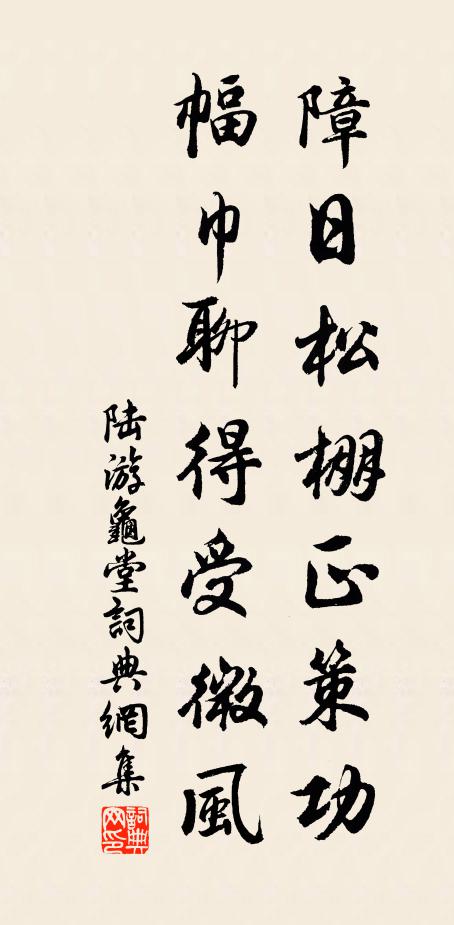 障日松棚正策功
幅巾聊得受微風
陸游龜堂詞典網集
詞典网印